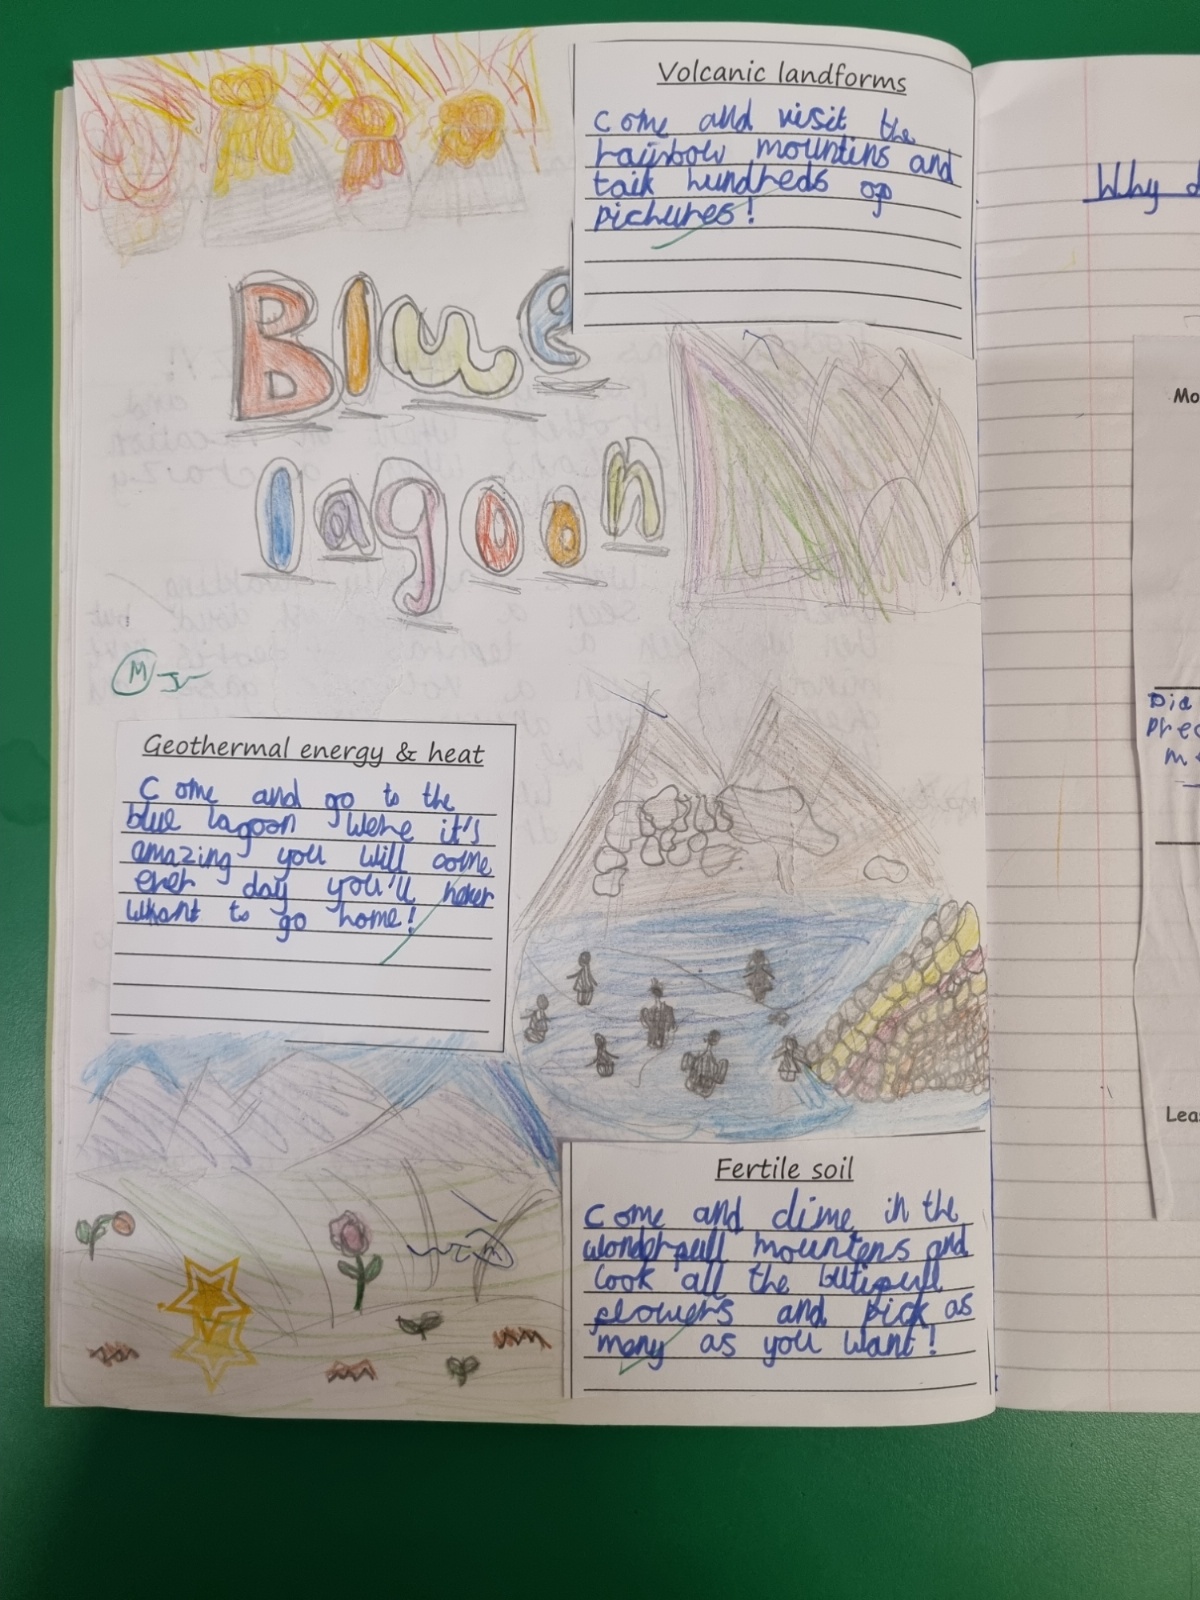 Volcanic landforms
Come and visit the
rainbow mountins and
taik hundreds of
pichures!
Blue
lagoon
Geothermal energy & heat
Come and go to the
blue lagoon were it's
amazing you will come
ever day you'll never
whant to go home!
Fertile soil
Come and dime in the
wonderfull mountens and
look all the butifull
flowers and pick as
meny as you want!
Why d
Mo
Dia
Prec
Lea